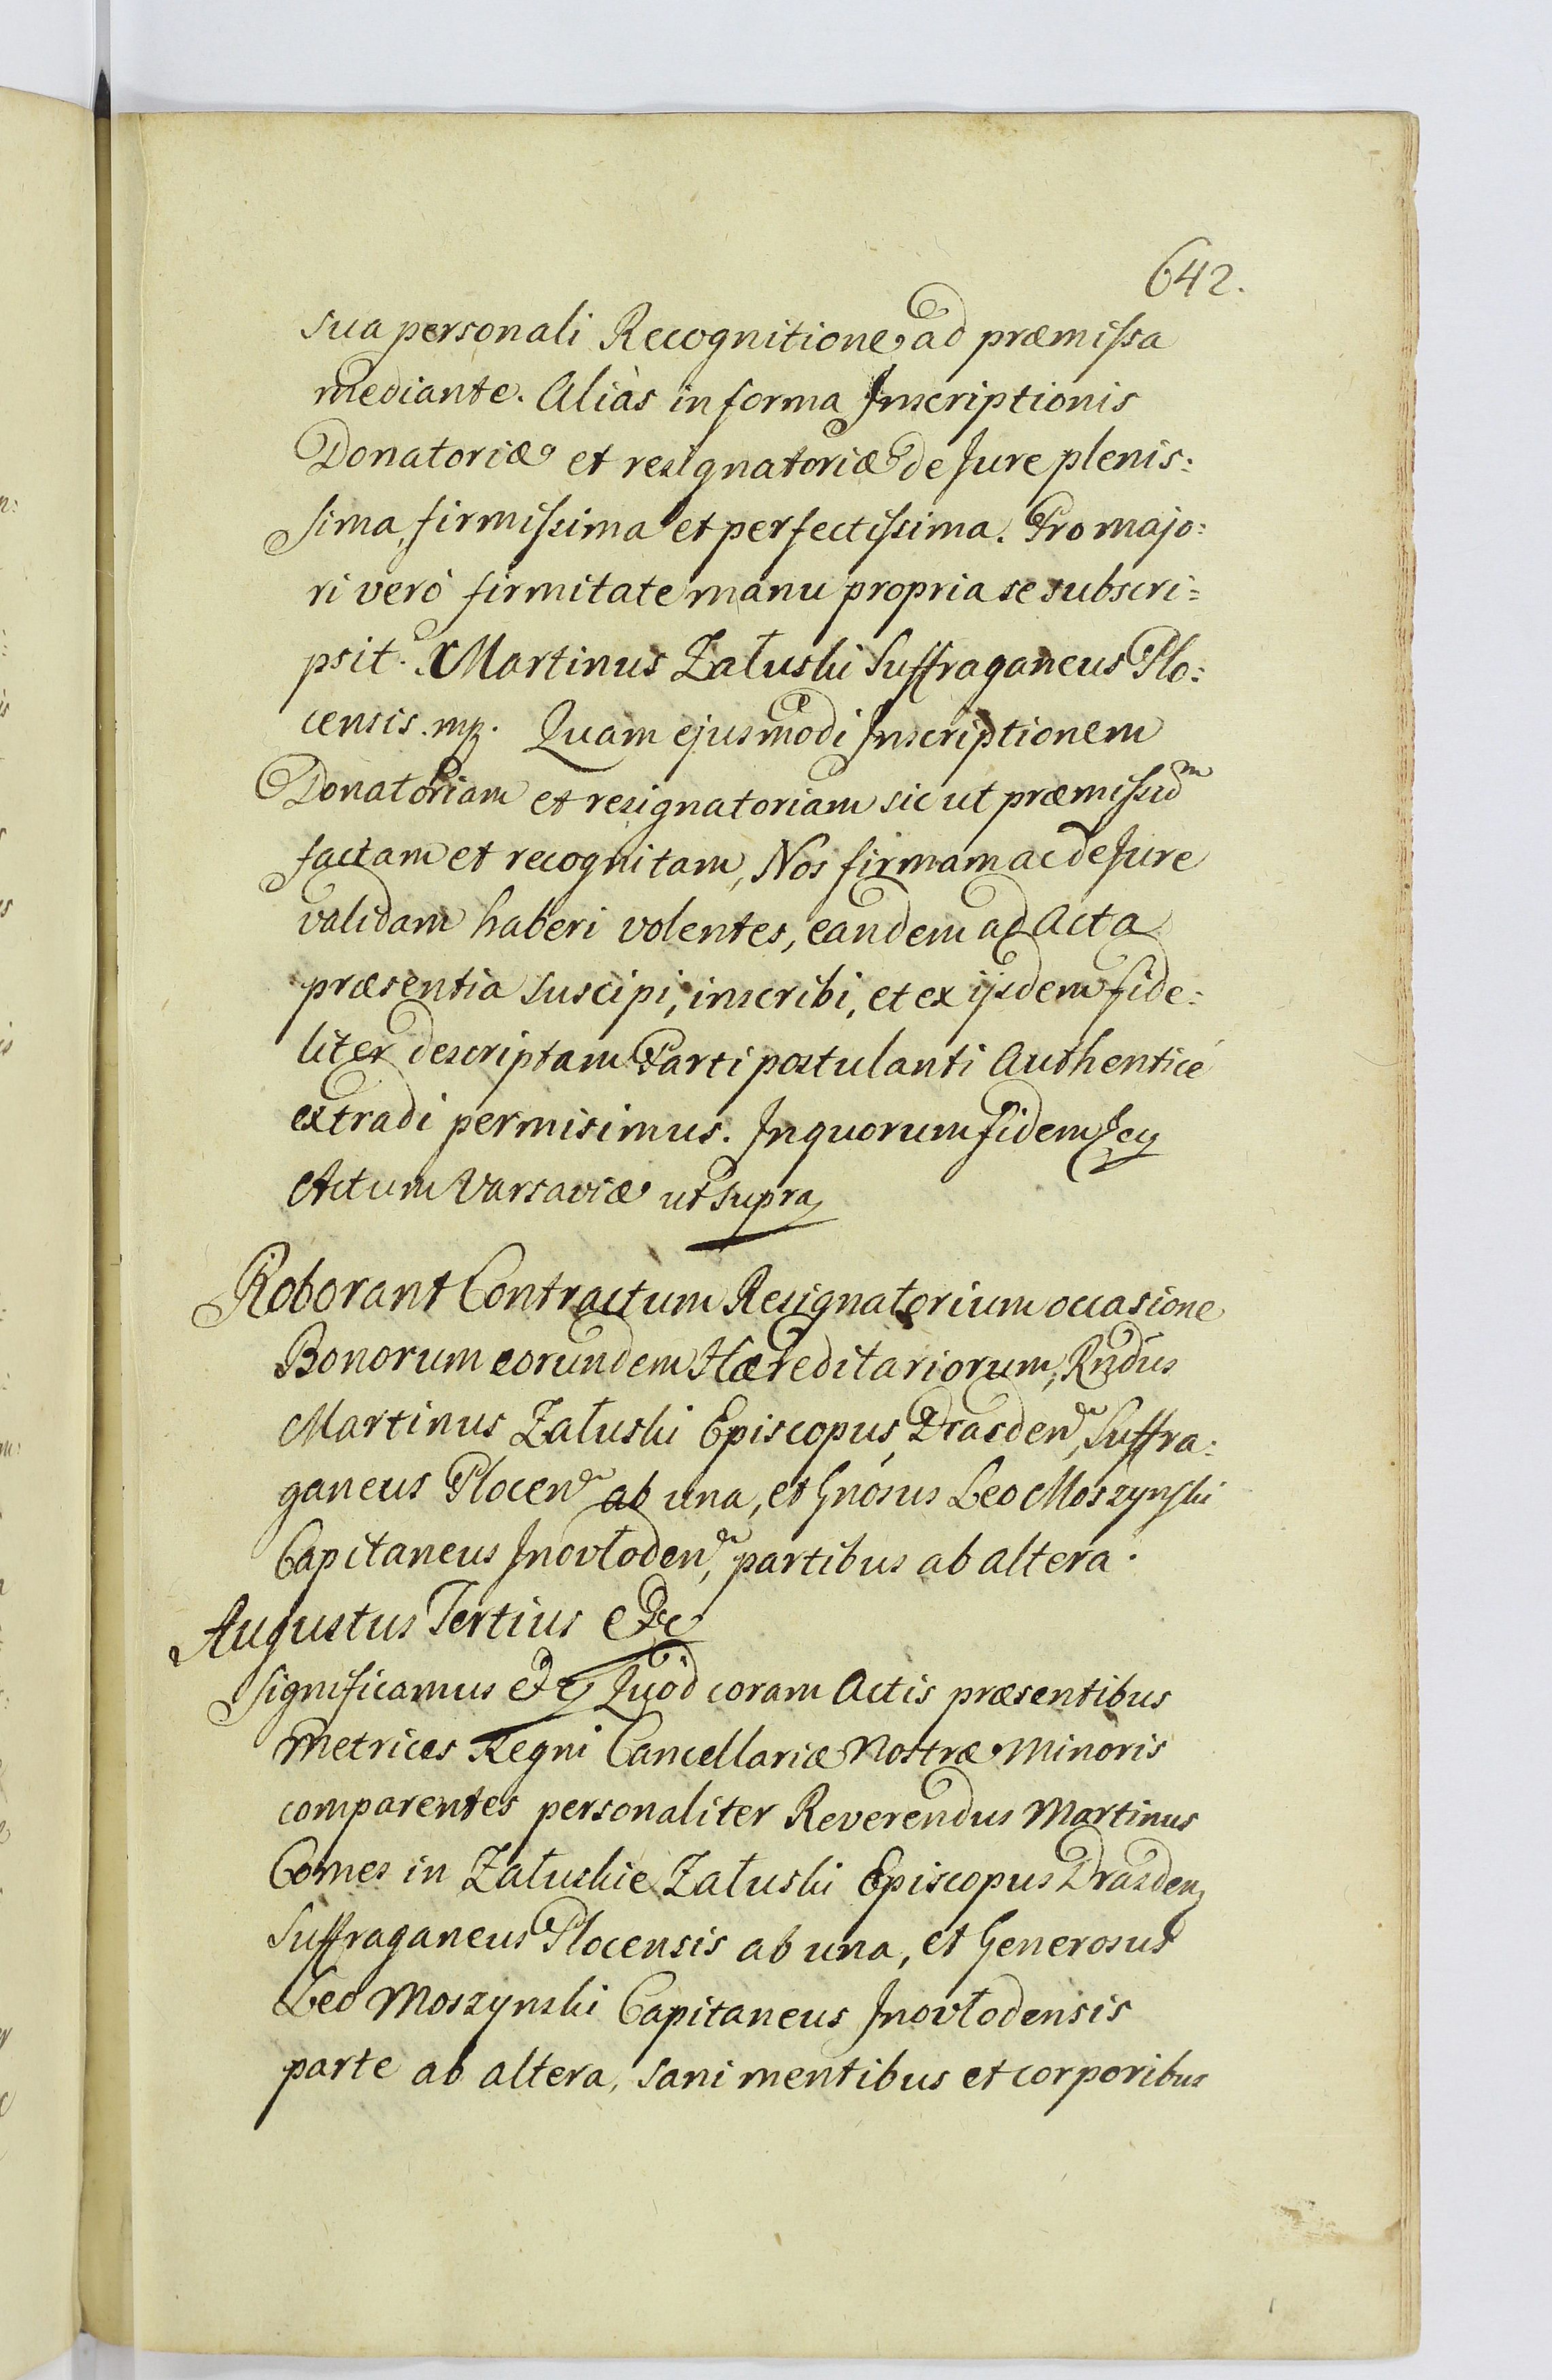 642.
sua personali Recognitione ad præmissa
mediante. Aliàs in forma Inscriptionis
Donatoriæ et resignatoriæ de Jure plenis:
sima, firmissima et perfectissima. Pro majo:
ri verò firmitate manu propria se subscri=
psit. Martinus Załuski Suffraganeus Plo:
censis. mp. Quam ejusmodi Inscriptionem
Donatoriam et resignatoriam sic ut præmissũ
factam et recognitam, Nos firmam ac de Jure
validam haberi volentes, eandem ad Acta
præsentia suscipi, inscribi, et ex ijsdem fide:
liter descriptam Parti postulanti Authenticé
extradi permisimus. In quorum fidem &c
Actum Varsaviæ ut supra
Roborant Contractum Resignatorium occasione
Bonorum eorundem Hæreditariorum, Rńdus
Martinus Załuski Episcopus Drasden, Suffra:
ganeus Plocen ab una, et Gnosus Leo Moszynski
Capitaneus Inovłoden, partibus ab altera.
Augustus Tertius &c
Significamus &c Quòd coram Actis præsentibus
Metrices Regni Cancellariæ Nostræ Minoris
comparentes personaliter Reverendus Martinus
Comes in Załuskie Załuski Episcopus Drasden
Suffraganeus Plocensis ab una, et Generosus
Leo Moszynski Capitaneus Inovłodensis
parte ab altera, sani mentibus et corporibus